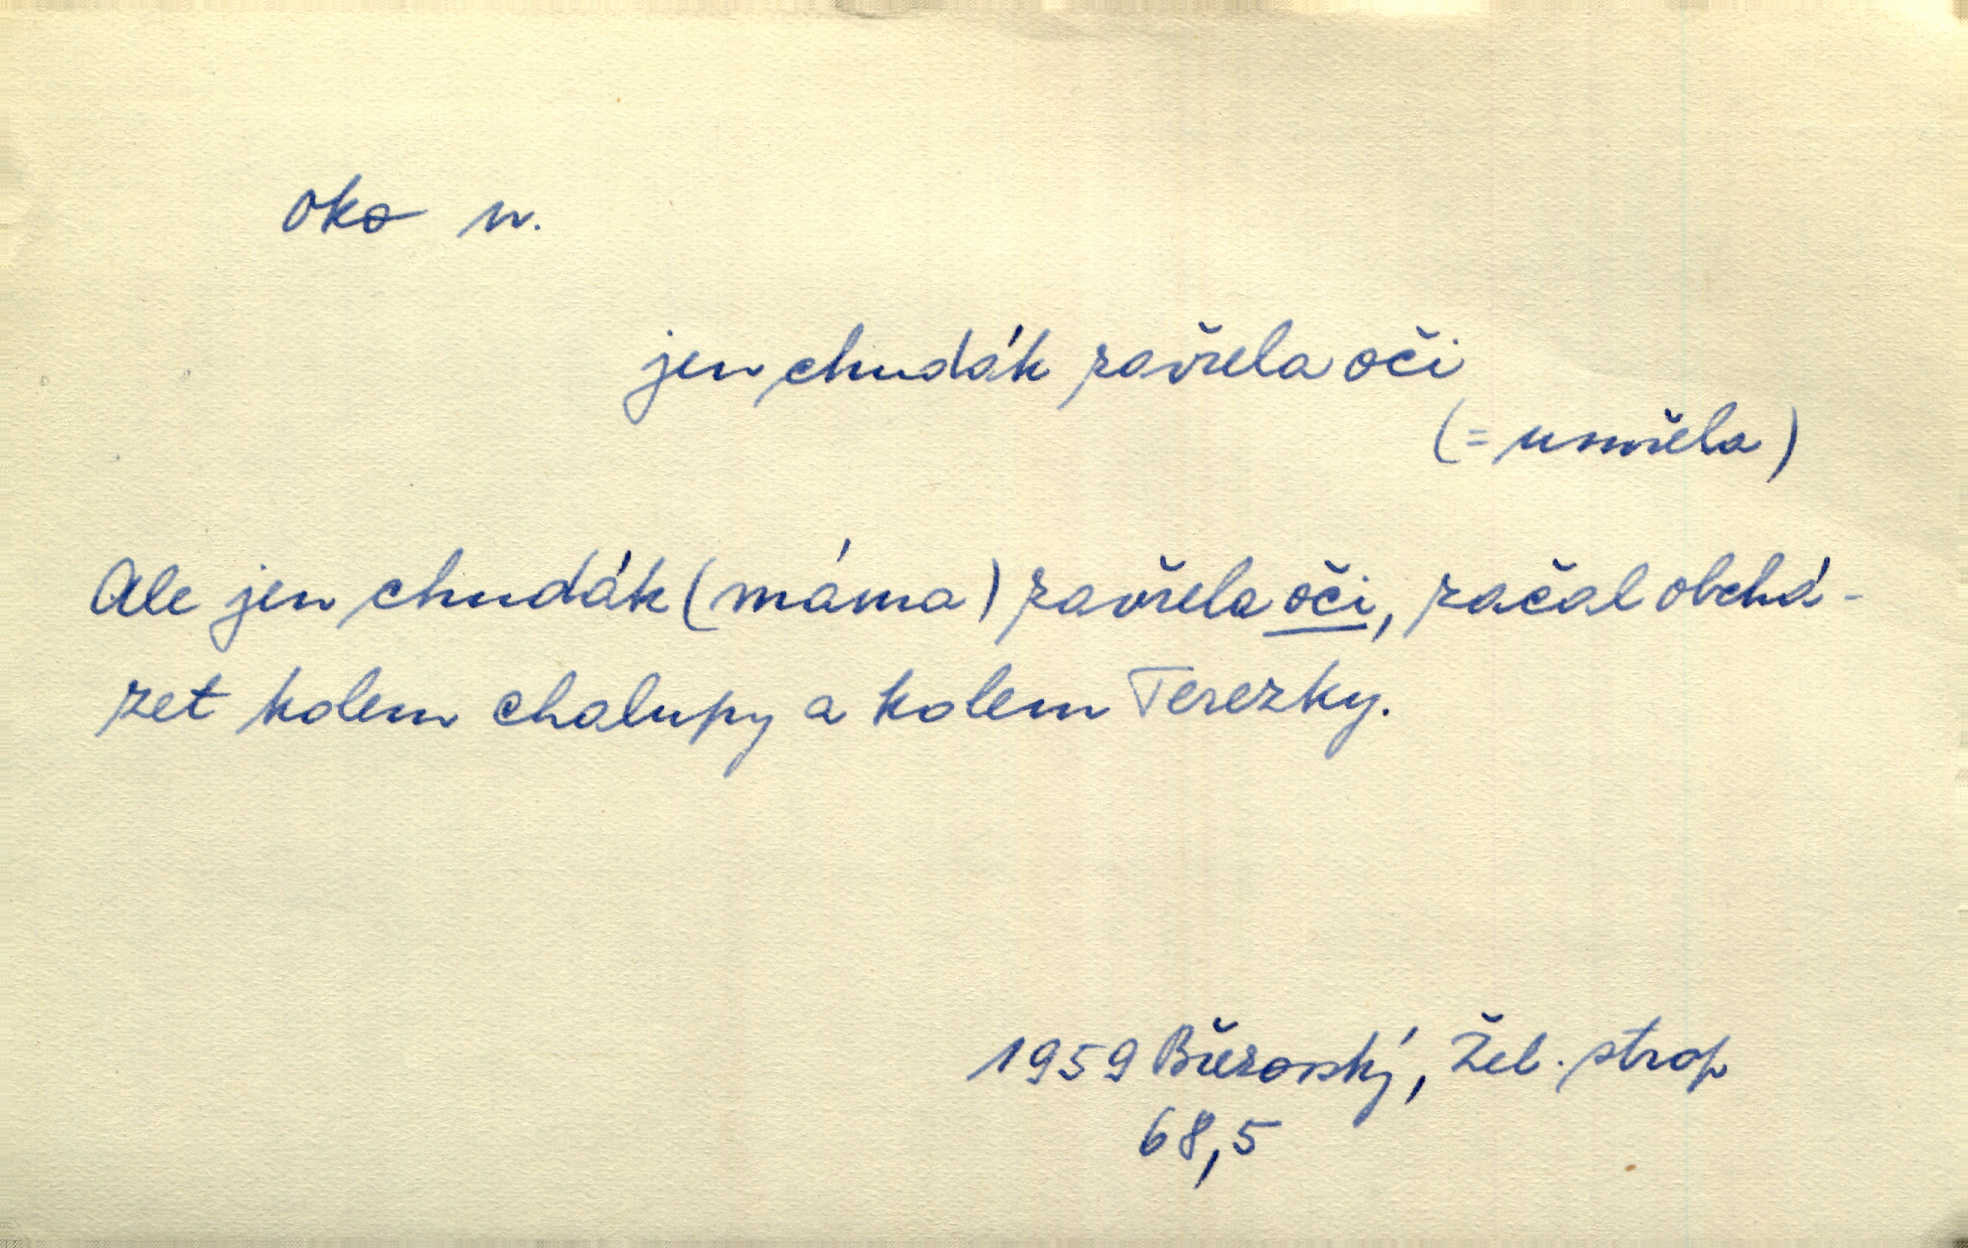 oko n.
jen chudák zavřela oči
(= umřela)
Ale jen chudák (máma) zavřela oči, začal obchá-
zet kolem chalupy a kolem Terezky.
1959 Březovský, Žel. strop
68,5